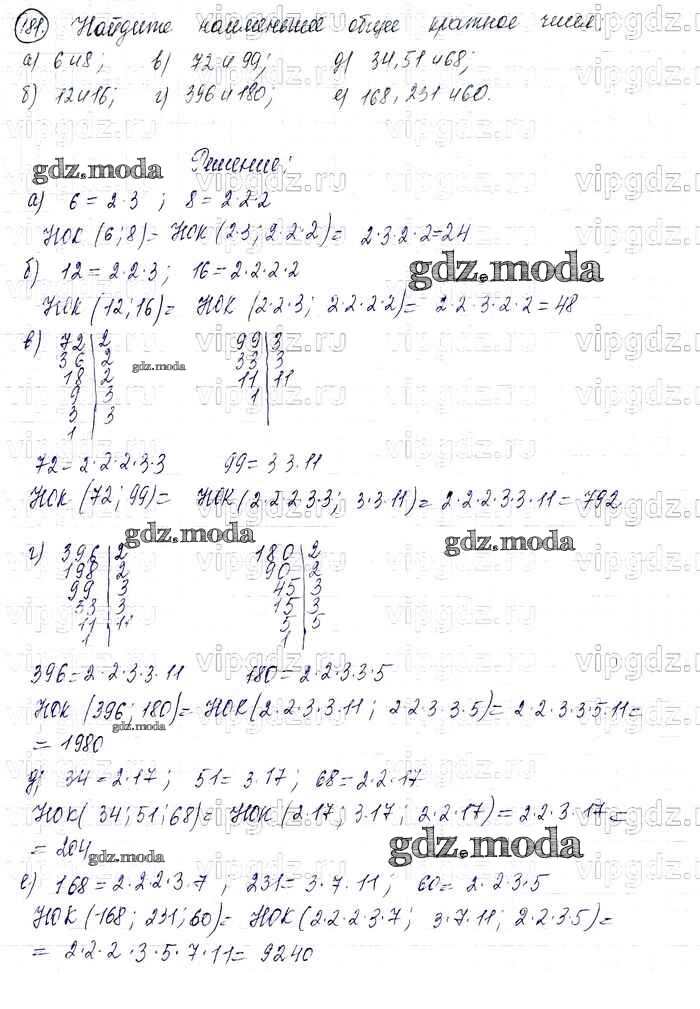 181. Найдите наименьшее общее кратное чисел:
а) 6 и 8; в) 72 и 99; д) 34, 51 и 68;
б) 12 и 16; г) 396 и 180; е) 168, 231 и 60.
Решение:
gdz.moda
а) 6 = 2·3 ; 8 = 2·2·2
НОК (6; 8) = НОК (2·3; 2·2·2) = 2·3·2·2 = 24
б) 12 = 2·2·3; 16 = 2·2·2·2
gdz.moda
НОК (12; 16) = НОК (2·2·3; 2·2·2·2) = 2·2·3·2·2 = 48
в) 72 | 2 99 | 3
36 | 2 33 | 3
18 | 2 11 | 11
9 | 3 1 |
3 | 3
1 |
gdz.moda
72 = 2·2·2·3·3 99 = 3 3·11
НОК (72; 99) = НОК (2·2·2 3·3; 3·3·11) = 2·2·2·3·3·11 = 792
gdz.moda
gdz.moda
г) 396 | 2 180 | 2
198 | 2 90 | 2
99 | 3 45 | 3
33 | 3 15 | 3
11 | 11 5 | 5
1 | 1 |
396 = 2·2·3·3·11 180 = 2·2·3·3·5
НОК (396; 180) = НОК (2·2·3·3·11; 2·2·3 3·5) = 2·2·3·3·5·11 =
= 1980
gdz.moda
д) 34 = 2·17; 51 = 3·17; 68 = 2·2·17
НОК (34; 51; 68) = НОК (2·17; 3·17; 2·2·17) = 2·2·3·17 =
= 204
gdz.moda
gdz.moda
е) 168 = 2·2·2·3·7 ; 231 = 3·7·11; 60 = 2·2·3·5
НОК (168; 231; 60) = НОК (2·2·2·3·7; 3·7·11; 2·2·3·5) =
= 2·2·2·3·5·7·11 = 9240
vipgdz.ru